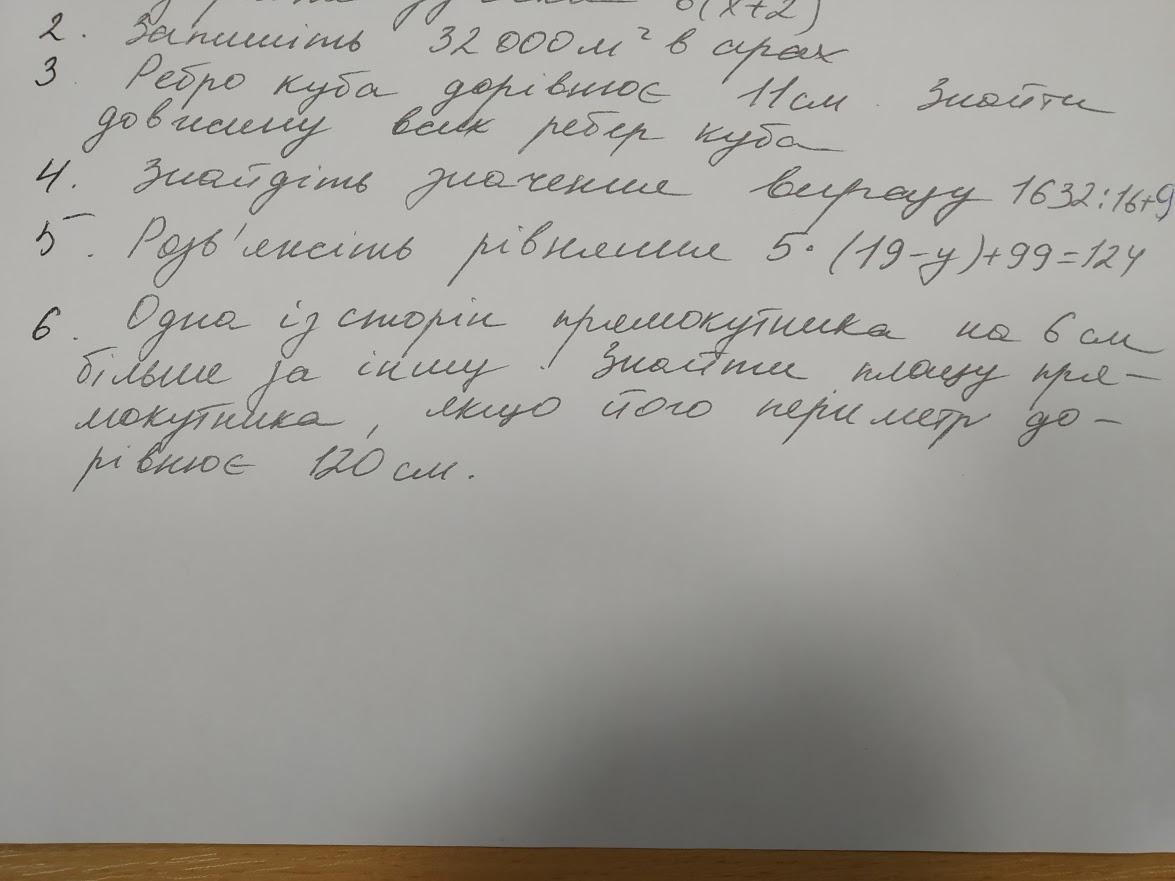 6(x+2)
2. Запишіть 32 000 м² в арах
3. Ребро куба дорівнює 11 см. Знайти
довжину всіх ребер куба
4. Знайдіть значення виразу 1632:16+9
5. Розв'яжіть рівняння 5·(19-y)+99=124
6. Одна із сторін прямокутника на 6 см
більше за іншу. Знайти площу пря-
мокутника, якщо його периметр до-
рівнює 120 см.